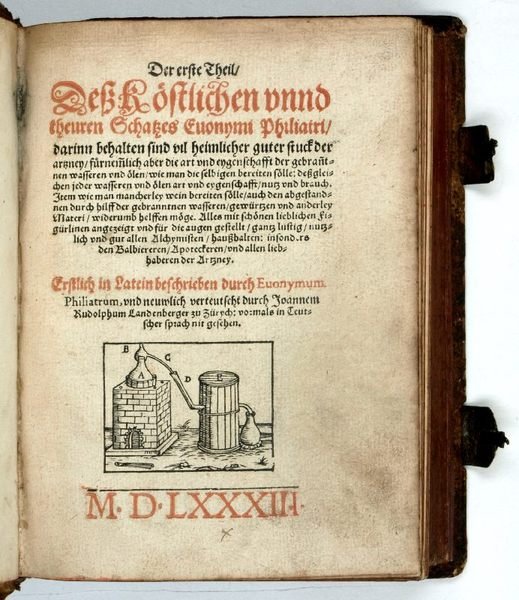 Der erste Theil/
Deß Köstlichen vnnd
theuren Schatzes Euonymi Philiatri/
darinn behalten sind vil heimlicher guter stuck der
artzney/ fürnemlich aber die art vnd eygenschafft der gebrañt-
nen wasseren vnd ölen/ wie man die selbigen bereiten sölle: deßglei-
chen jeder wasseren vnd ölen art vnd eygenschafft/ nutz vnd brauch.
Item wie man mancherley wein bereiten sölle/ auch den abgestand-
nen durch hilff der gebranntnen wasseren/ gewürtzen vnd anderley
Materi/ widerumb helffen möge. Alles mit schönen lieblichen Fi-
gürlinen angezeigt vnd für die augen gestellt/ gantz lustig/ nutz-
lich vnd gut allen Alchymisten/ haußhalten: insond.rs
den Balbiereren/ Apoteckeren/ vnd allen lieb-
haberen der Artzney.
Erstlich in Latein beschrieben durch Euonymum.
Philiatrum, vnd neuwlich verteutscht durch Joannem
Rudolphum Landenberger zu Zürych: vormals in Teut-
scher sprach nit gesehen.
B
C
A
D
E
M. D. LXXXIII.